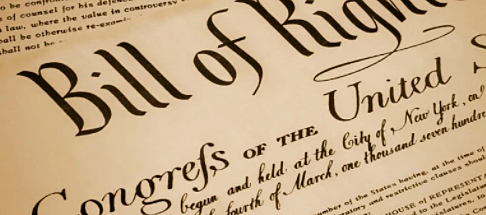 to be confron
of counsel for his defen
law, where the value in controversy
all be otherwise re-exami
shall not be
Bill of Right
Congrefs OF THE United S
begun and held at the City of New York, on
fourth of March, one thousand seven hundre
number of the States having, at the time of
and restrictive clauses should
HOUSE of REPRESENTA
to the Legislatur
Legislatures,